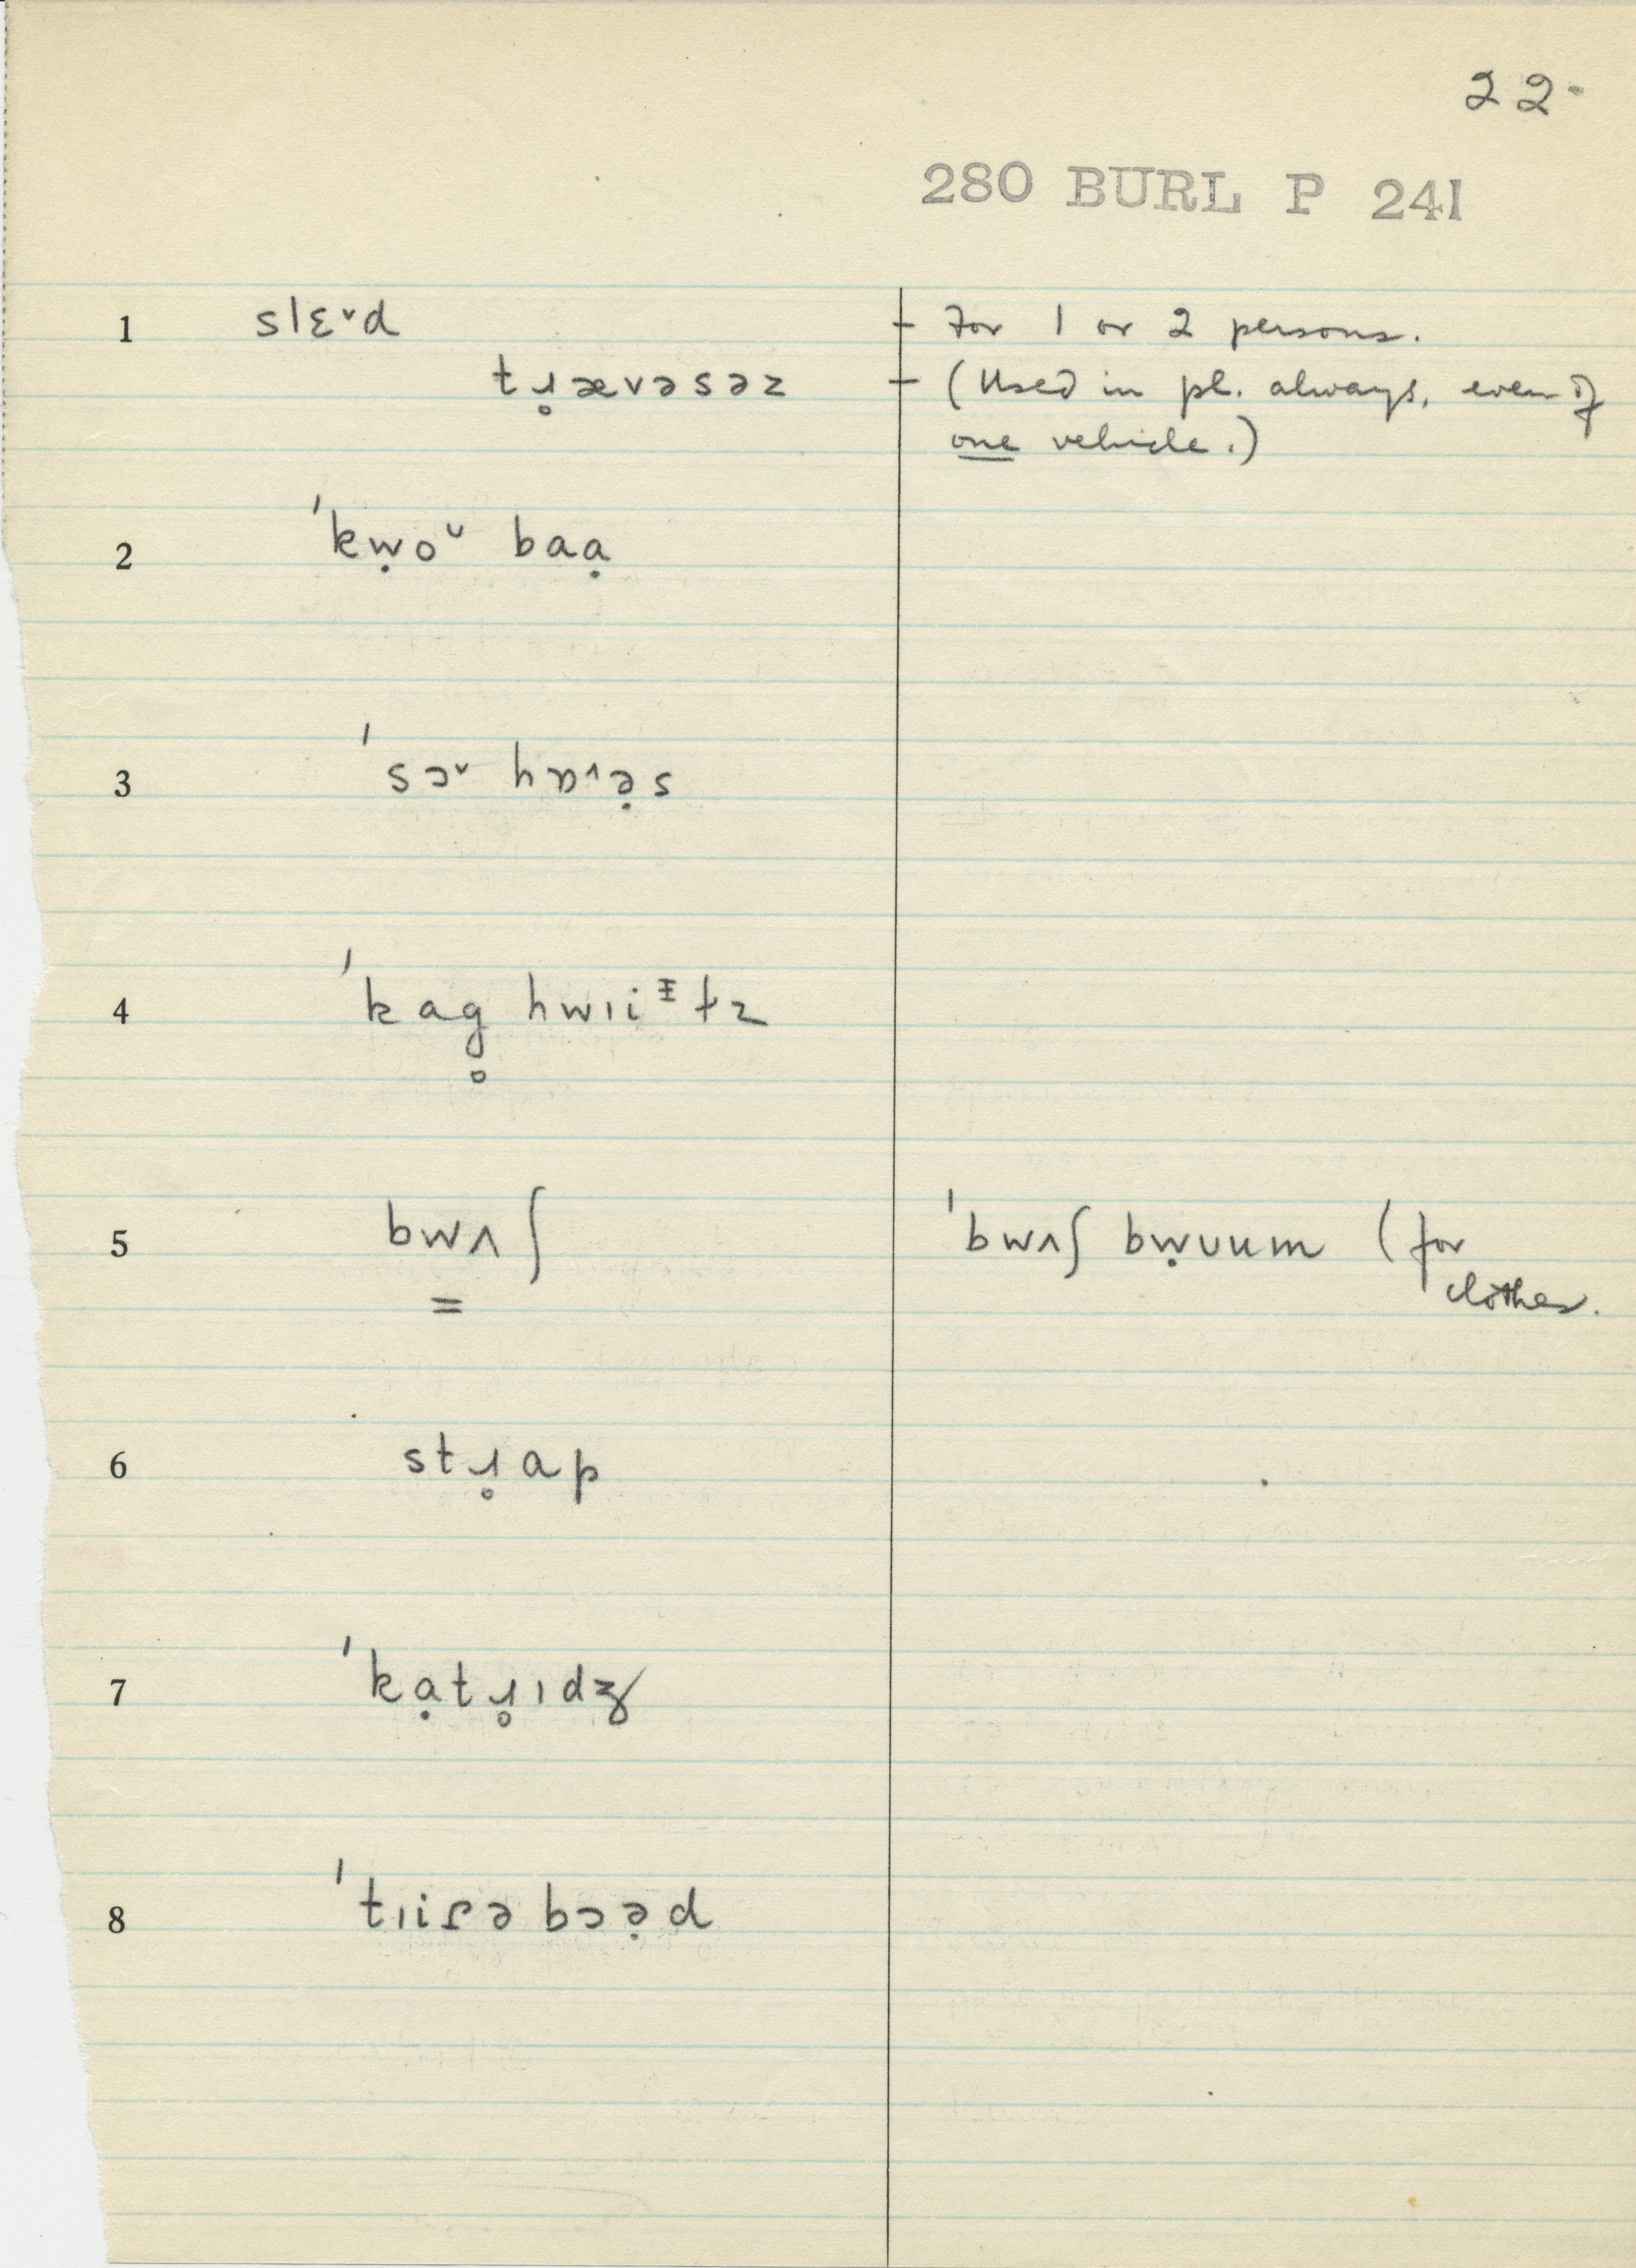 22-
280 BURL P 241
1 slɛ˅d - For 1 or 2 persons.
tɹ̥ævəsəz - (Used in pl. always, even if
one vehicle.)
2 ˈkẉoᵛ baạ
3 ˈsɔ˅ hɒ˄ə̣s
4 ˈkag̥ hwɪiᵻtz
5 bwʌ̳ʃ ˈbwʌʃ bẉᴜum (for
clothes.
6 stɹ̥ap
7 ˈkạtɹ̥ɪdʒ
8 ˈtɪiɾə bɔə̣d